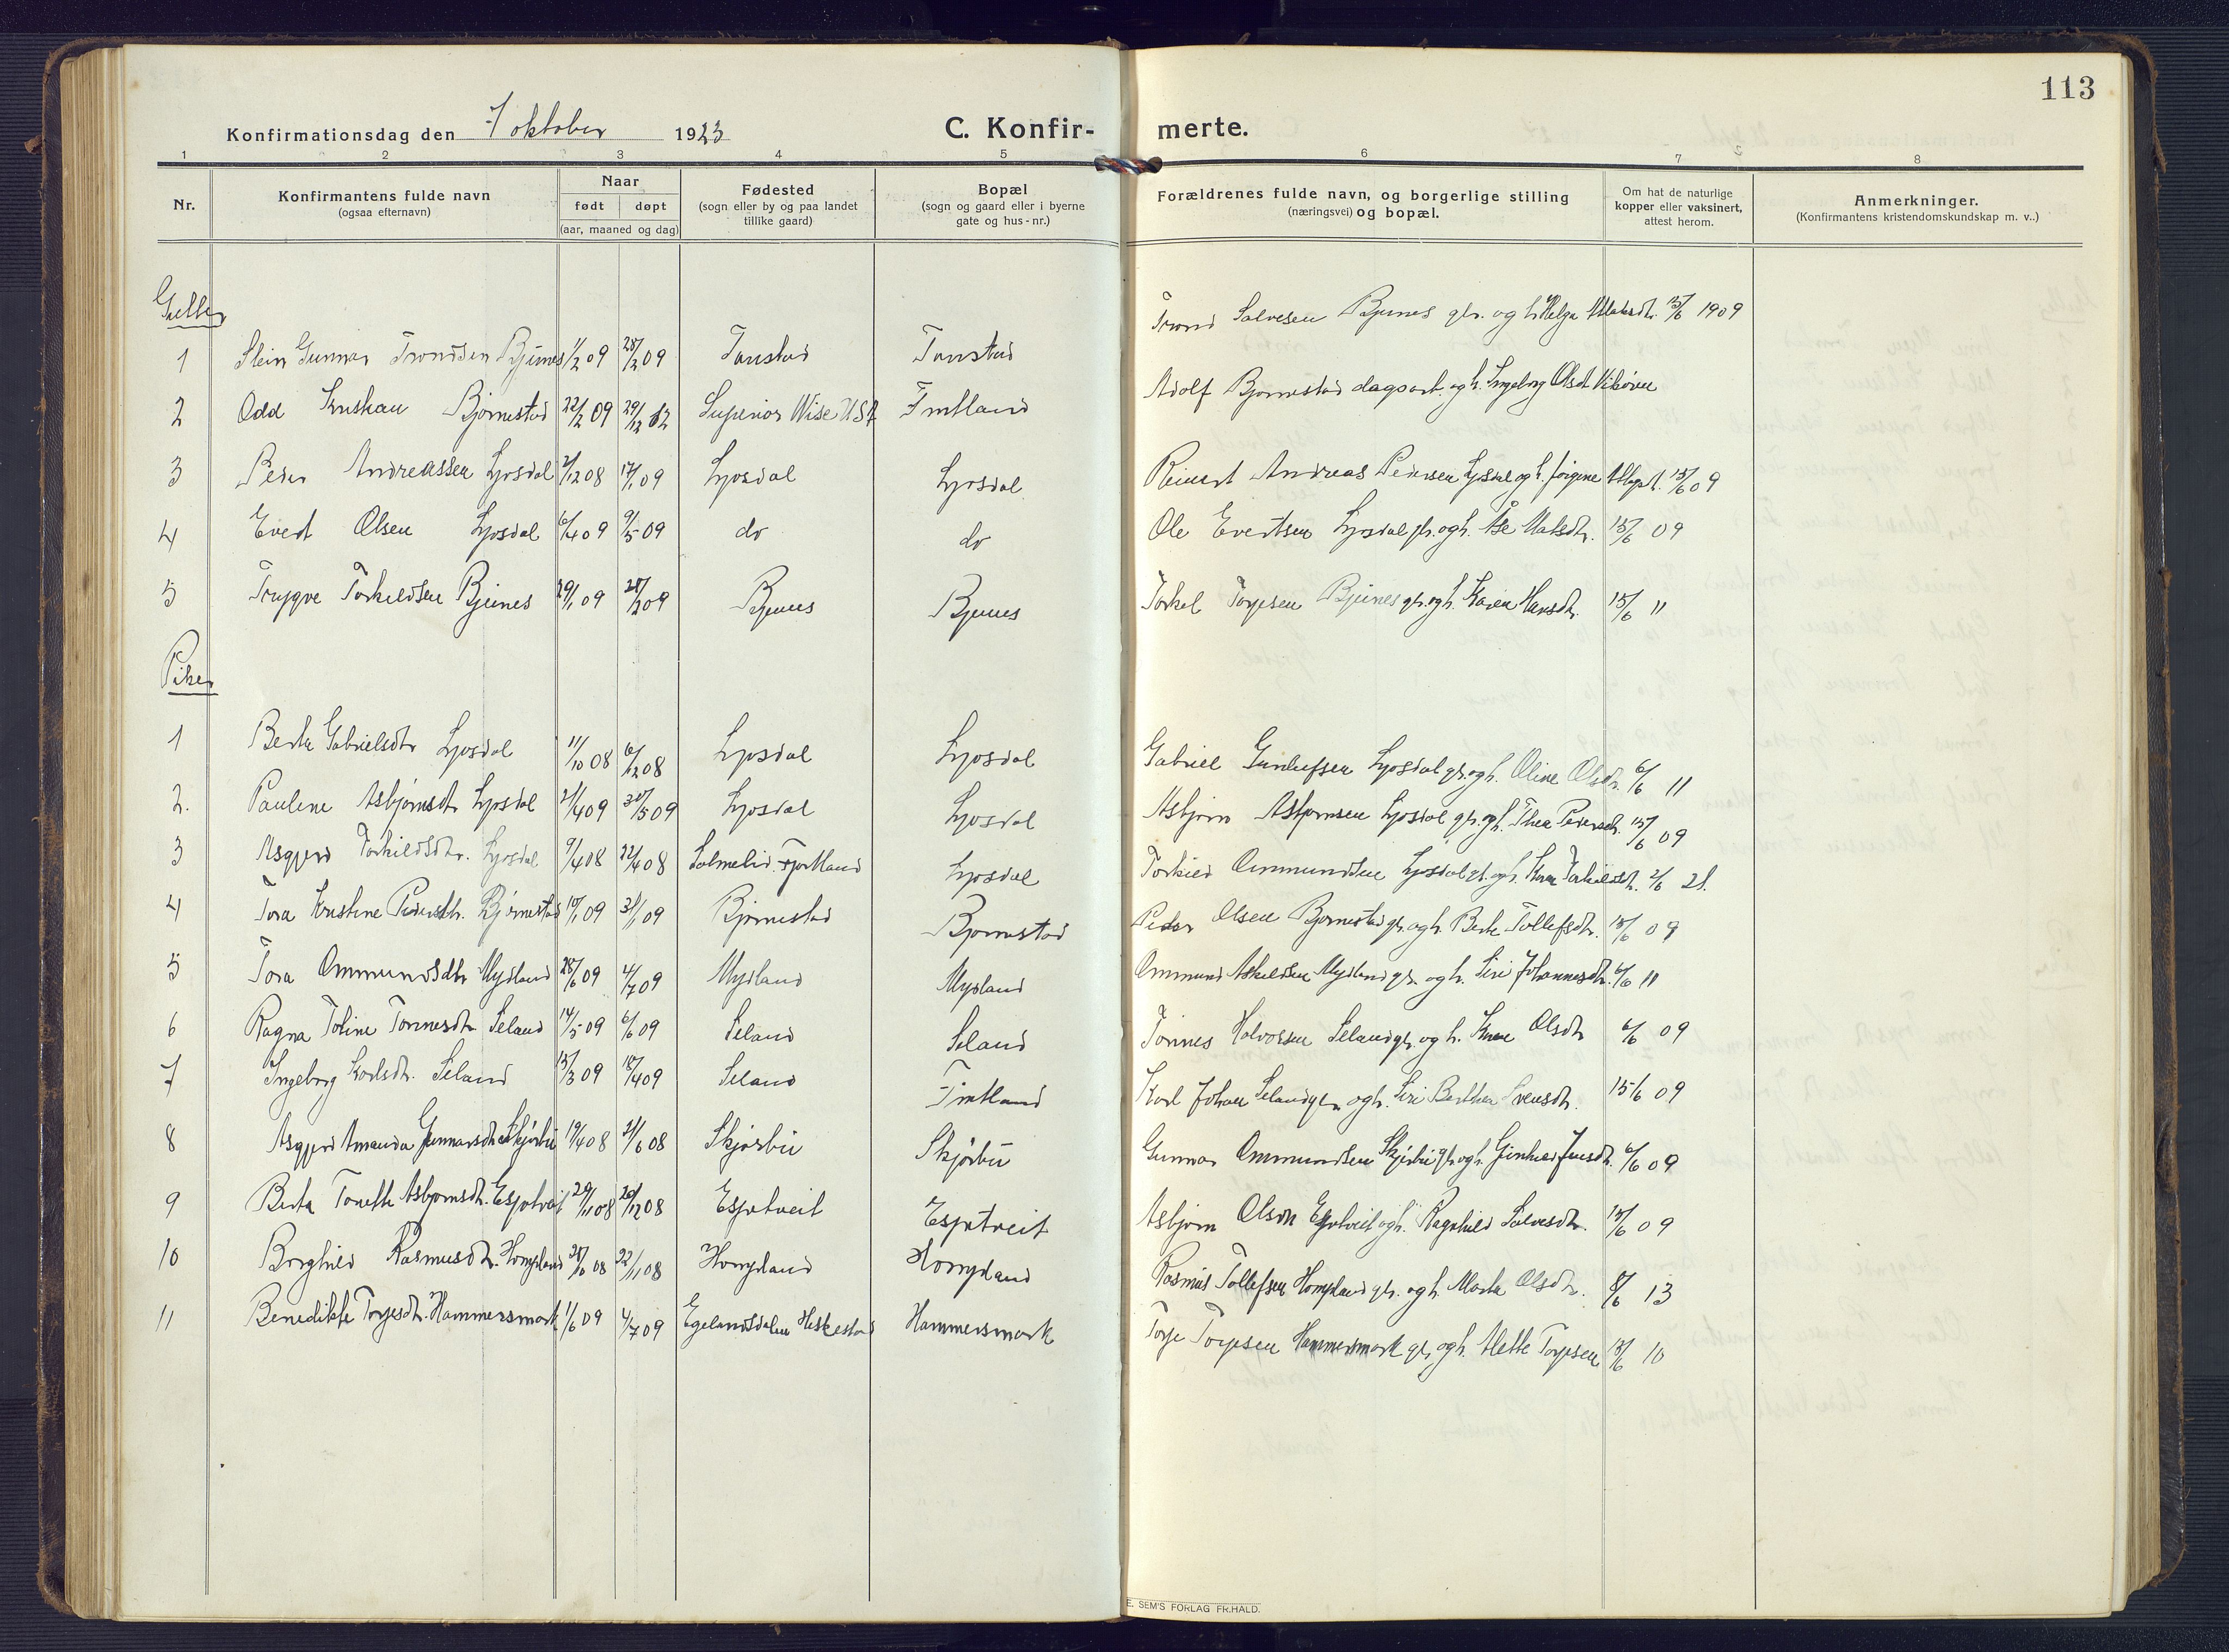 113
Konfirmationsdag den 7 oktober 1923
C. Konfir- merte.
1 2 3 4 5 6 7 8
Nr.
Konfirmantens fulde navn
(ogsaa efternavn)
Naar
født døpt
(aar, maaned og dag)
Fødested
(sogn eller by og paa landet
tillike gaard)
Bopæl
(sogn og gaard eller i byerne
gate og hus-nr.)
Forældrenes fulde navn, og borgerlige stilling
(næringsvei) og bopæl.
Om hat de naturlige
kopper eller vaksinert,
attest herom.
Anmerkninger.
(Konfirmantens kristendomskundskap m. v..)
Gutter
1 Stein Gunnar Trondsen Bjunes 1/2 09 28/2 09 Tonstad Tonstad Trond Salvesen Bjunes gbr. og h. Helga 15/6 1909
2 Odd Bjørnestad 22/2 09 29/12 12 Superior Wise USA Fintland Adolf Bjørnestad og h. Ingeborg Olsdt
3 Peder Andreassen Lyosdal 2/12 08 17/1 09 Lyosdal Lyosdal Reinert Andreas Pedersen Lyosdal og h. 15/6 09
4 Evert Olsen Lyosdal 6/4 09 9/5 09 do do Ole Evertsen Lyosdal gb. og h. Åse Matsdtr. 15/6 09
5 Trygve Torkeldsen Bjunes 29/1 09 28/2 09 Bjunes Bjunes Torkel Torjesen Bjunes gb. og h. Karen Hansdtr. 15/6 11
Piker
1 Berta Gabrielsdtr Lyosdal 11/10 08 6/12 08 Lyosdal Lyosdal Gabriel Gunlufsen Lyosdal gb. og h. Oline Olsdtr. 6/6 11
2. Pauline Asbjørnsdtr Lyosdal 21/4 09 30/5 09 Lyosdal Lyosdal Asbjørn Asbjørnsen Lyosdal gb. og h. Thea Pedersdt. 15/6 09
3 Asgjerd Torkildsdtr. Lyosdal 9/4 08 22/4 08 Solmelid Fjotland Lyosdal Torkild Ommundsen Lyosdal gb. og h. Torkildsdt. 2/6 21.
4 Tora Kristine Pedersdtr. Bjørnestad 10/1 09 31/1 09 Bjørnestad Bjørnestad Peder Olsen Bjørnestad gb. og h. Berte Tollefsdtr. 15/6 09
5 Tora Ommundsdtr Mydland 28/6 09 4/7 09 Mydland Mydland Ommund Askeldsen Mydland gb. og h. Siri Johannesdtr. 6/6 11
6 Ragna Toline Tønnesdtr Seland 14/5 09 6/6 09 Seland Seland Tønnes Halvorsen Seland gb. og h. Olsdtr 6/6 09
7 Ingeborg Karlsdtr. Seland 15/3 09 18/4 09 Seland Fintland Karl Johan Seland gb. og h. Siri Berthea Svensdtr. 15/6 09
8 Asgjerd Amanda Gunnarsdtr Skjørbu 19/4 08 21/6 08 Skjørbu Skjørbu Gunnar Ommundsen Skjørbu gb. og h. 6/6 09
9 Berta Tonette Asbjørnsdtr. Espetveit 29/11 08 20/12 08 Espetveit Espetveit Asbjørn Olsen Espetveit og h. Ragnhild Salvesdtr. 15/6 09
10 Borghild Rasmusdtr. Hompland 25/10 08 22/11 08 Hompland Hompland Rasmus Tollefsen Hompland gb. og h. Marta Olsdtr. 8/6 13
11 Benedikte Torjesdtr. Hammersmark 1/6 09 4/7 09 Egelandsdalen Heskestad Hammersmark Torje Torjesen Hammersmark gb. og h. Mette Torjesen 13/6 10
E. SEM'S FORLAG FR.HALD.